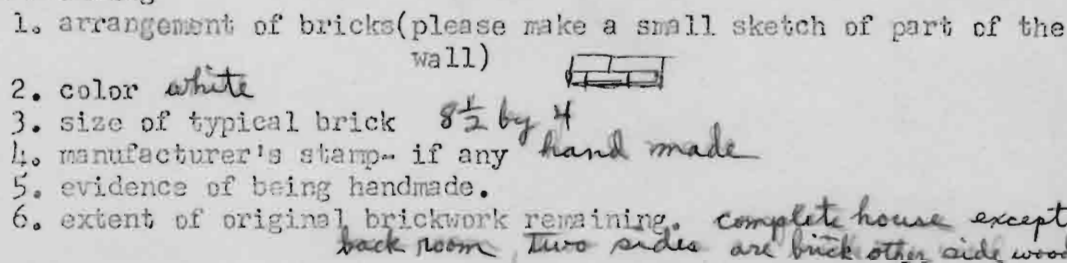 1. arrangement of bricks(please make a small sketch of part of the
wall)
2. color white
3. size of typical brick 8½ by 4
4. manufacturer's stamp- if any hand made
5. evidence of being handmade.
6. extent of original brickwork remaining. complete house except
back room two sides are brick other side wood